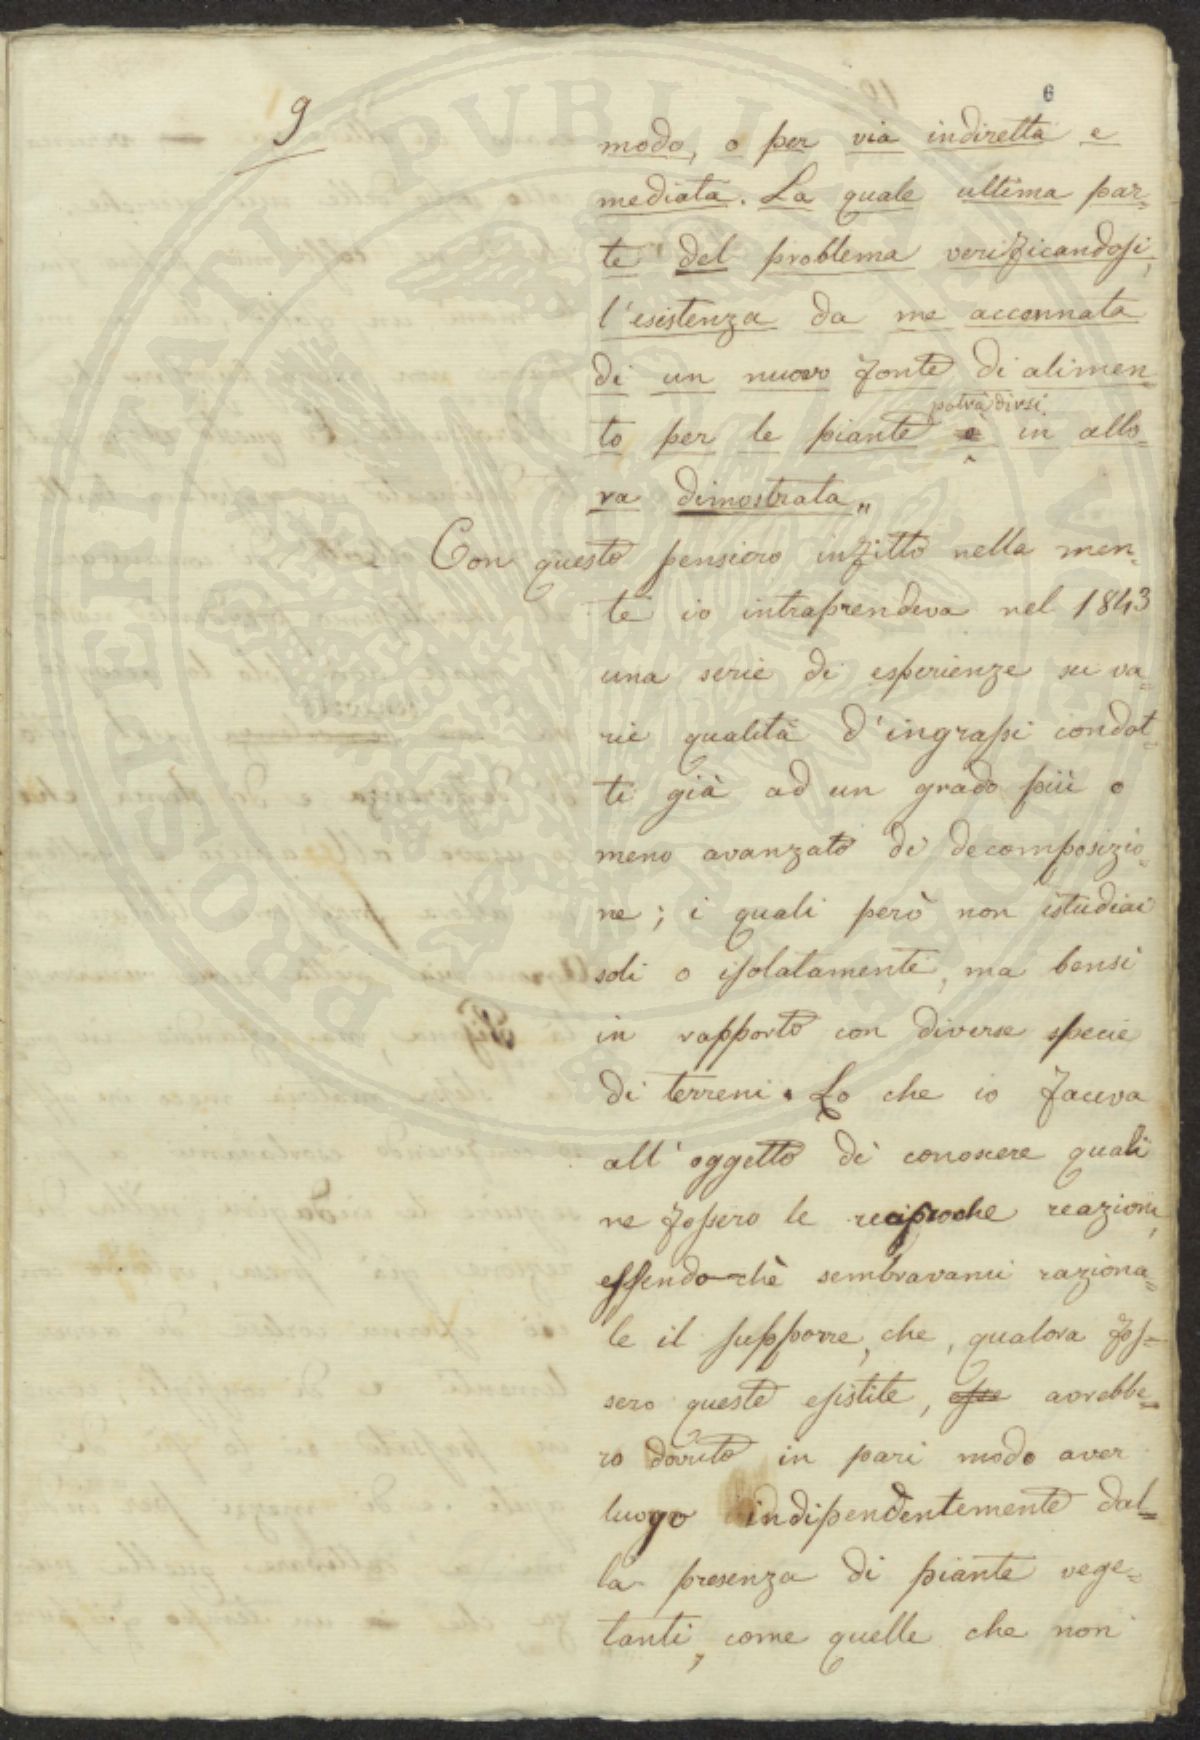 9
6
modo, o per via indiretta e
mediata. La quale ultima par-
te del problema verificandosi,
l'esistenza da me accennata
di un nuovo fonte di alimen-
potrà dirsi
to per le piante è in allo-
ra dimostrata„
Con questo pensiero infitto nella men-
te io intraprendeva nel 1843
una serie di esperienze su va-
rie qualità d'ingrassi condot-
ti già ad un grado più o
meno avanzato di decomposizio-
ne; i quali però non istudiai
soli o isolatamente, ma bensì
in rapporto con diverse specie
di terreni. Lo che io faceva
all'oggetto di conoscere quali
ne fossero le reciproche reazioni,
essendo-chè sembravami raziona-
le il supporre, che, qualora fos-
sero queste esistite, esse avrebbe-
ro dovuto in pari modo aver
luogo indipendentemente dal-
la presenza di piante vege-
tanti, come quelle che non
PROSPERITATI PUBLICAE